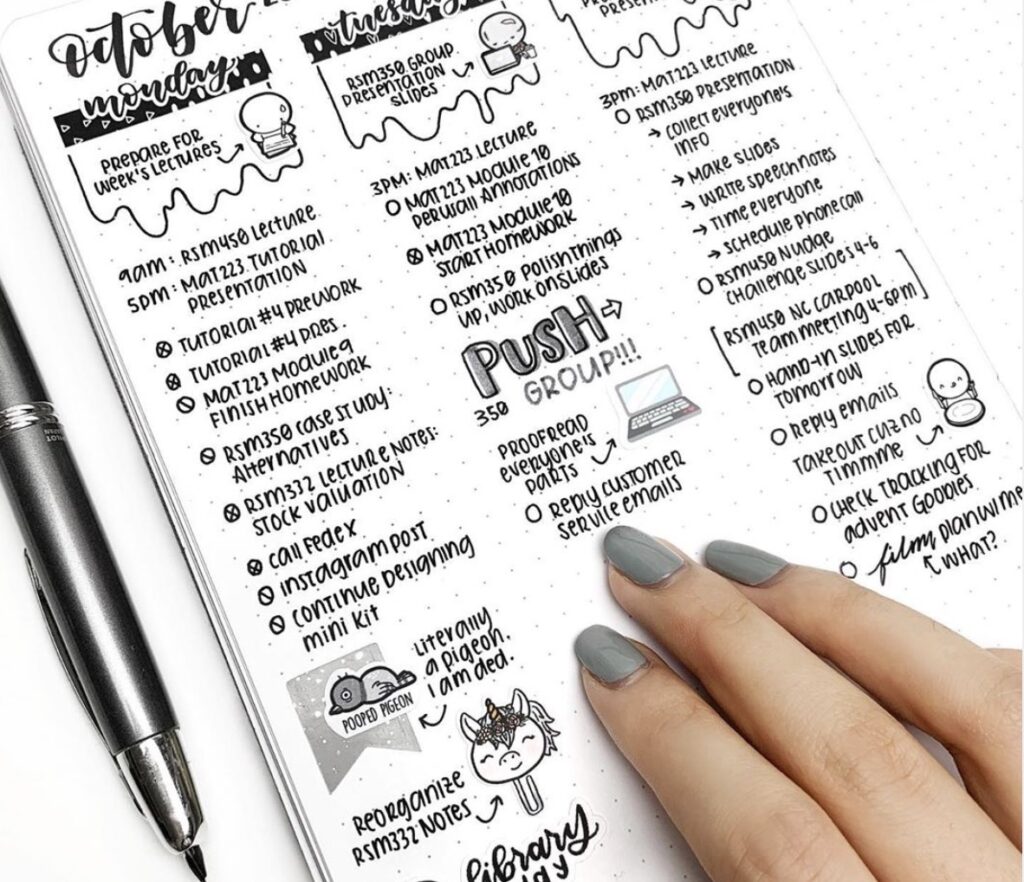 october
monday
PREPARE FOR
WEEK'S LECTURES
9am: RSM450 LECTURE
5PM: MAT223 TUTORIAL
PRESENTATION
TUTORIAL #4 PREWORK
TUTORIAL #4 PRES.
MAT223 MODULE 9
FINISH HOMEWORK
RSM350 CASE STUDY:
ALTERNATIVES
RSM332 LECTURE NOTES:
STOCK VALUATION
CALL FEDEX
INSTAGRAM POST
CONTINUE DESIGNING
MINI KIT
LITERALLY
A PIGEON.
I AM DED.
POOPED PIGEON
REORGANIZE
RSM332 NOTES
library
tuesday
RSM350 GROUP
PRESENTATION
SLIDES
3PM: MAT223 LECTURE
MAT223 MODULE 10
PERUSALL ANNOTATIONS
MAT223 MODULE 10
START HOMEWORK
RSM350 POLISH THINGS
UP, WORK ON SLIDES
PUSH
350 GROUP!!!
PROOFREAD
EVERYONE'S
PARTS
REPLY CUSTOMER
SERVICE EMAILS
3PM: MAT223 LECTURE
RSM350 PRESENTATION
COLLECT EVERYONE'S
INFO
MAKE SLIDES
WRITE SPEECH NOTES
TIME EVERYONE
SCHEDULE PHONE CALL
RSM450 NUDGE
CHALLENGE SLIDES 4-6
RSM450 NC CARPOOL
TEAM MEETING 4-6PM
HAND-IN SLIDES FOR
TOMORROW
REPLY EMAILS
TAKEOUT CUZ NO
TIMMME
CHECK TRACKING FOR
ADVENT GOODIES
film PLAN W/ ME
WHAT?
PILOT